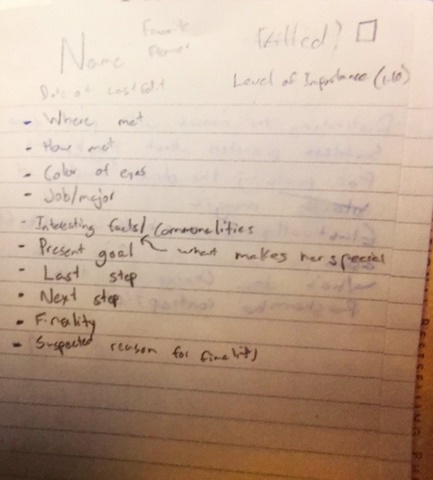 Name
Favorite
Killed? □
Date of Last Edit
Level of Importance (1-10)
- Where met
- How met
- Color of eyes
- Job/major
- Interesting facts/ commonalities
- Present goal what makes her special
- Last step
- Next step
- Finality
- Suspected reason for finality